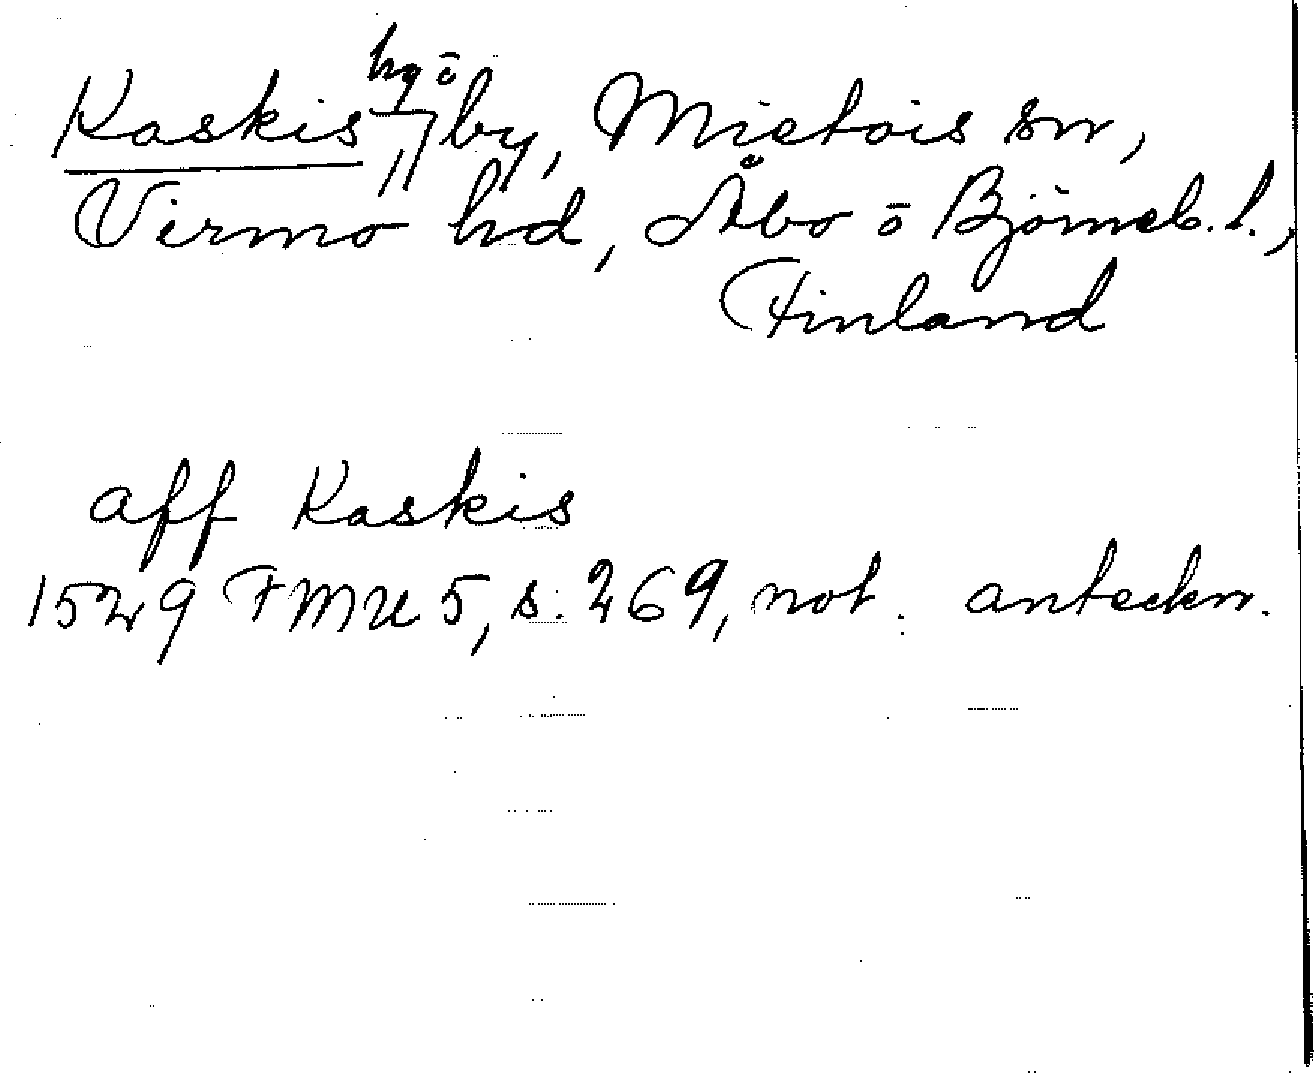 Kaskis hg ō by, Mietois sn,
Virmo hd, Åbo ō Björneb. l.,
Finland
aff Kaskis
1529 FMU 5, s. 269, not. anteckn.